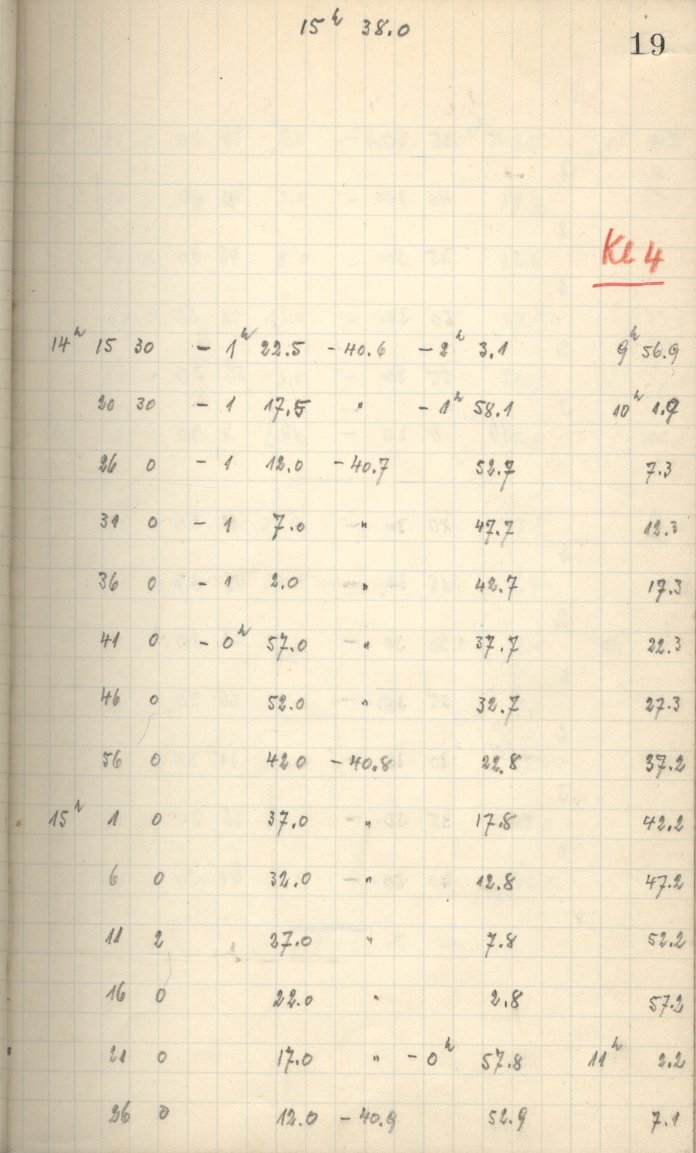 15ʰ 38.0
19
Kl 4
14ʰ 15 30 - 1ʰ 22.5 -40.6 -2ʰ 3.1 9ʰ 56.9
20 30 - 1 17.5 " - 1ʰ 58.1 10ʰ 1.9
26 0 - 1 12.0 -40.7 52.7 7.3
31 0 - 1 7.0 " 47.7 12.3
36 0 - 1 2.0 " 42.7 17.3
41 0 - 0ʰ 57.0 " 37.7 22.3
46 0 52.0 " 32.7 27.3
56 0 42.0 -40.8 22.8 37.2
15ʰ 1 0 37.0 " 17.8 42.2
6 0 32.0 " 12.8 47.2
11 2 27.0 " 7.8 52.2
16 0 22.0 " 2.8 57.2
21 0 17.0 " - 0ʰ 57.8 11ʰ 2.2
26 0 12.0 -40.9 52.9 7.1